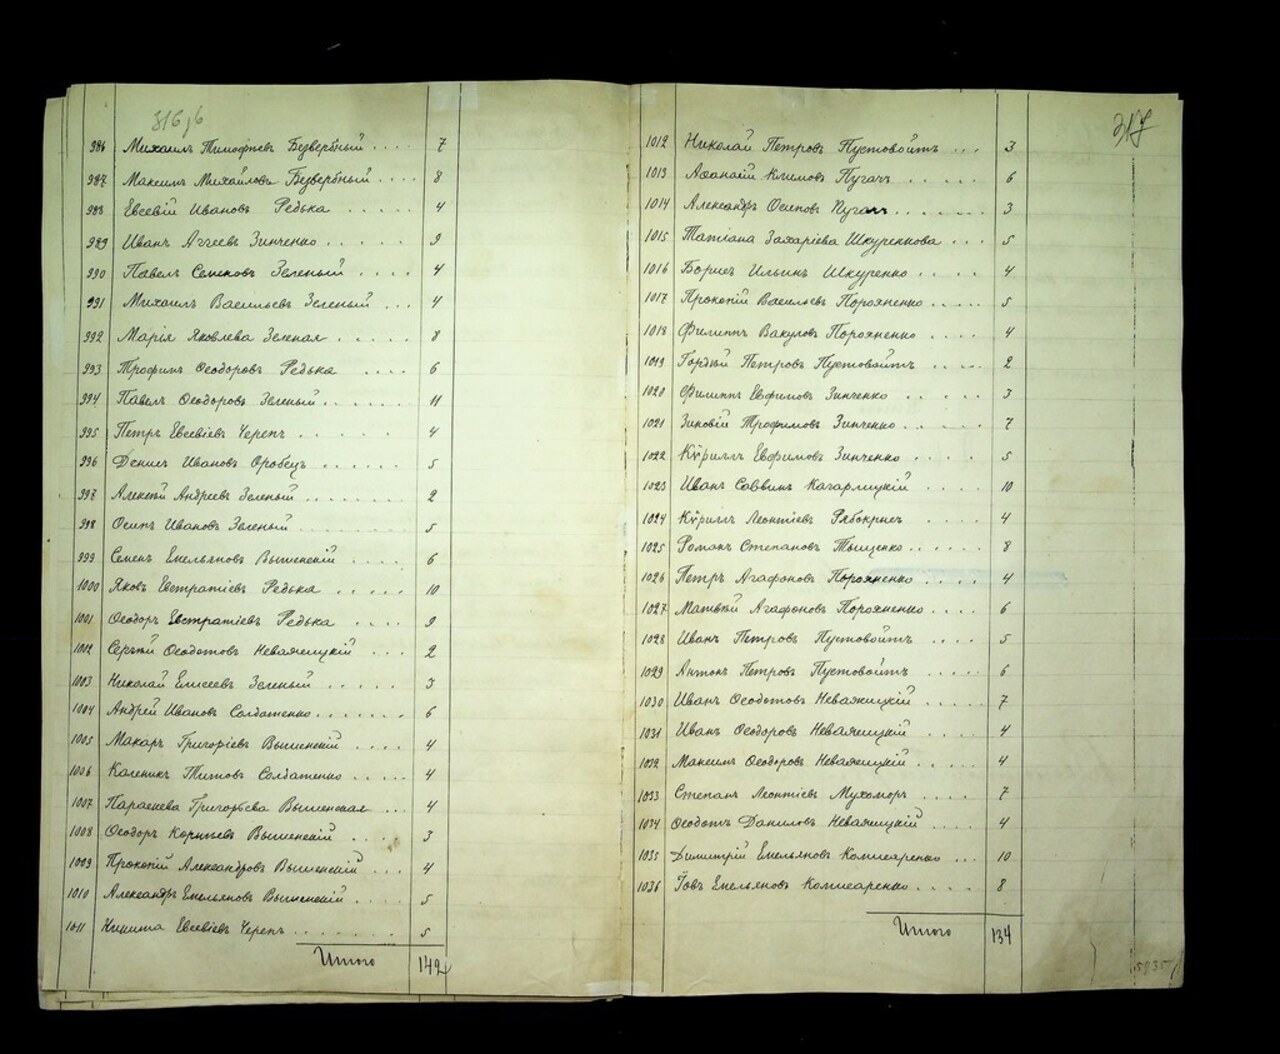 316 об
986 Михаилъ Тимофѣевъ Безвербный .... 7
987 Максимъ Михайловъ Безвербный .... 8
988 Евсевій Ивановъ Редька ..... 4
989 Иванъ Аггеевъ Зинченко ..... 9
990 Павелъ Семеновъ Зеленый .... 4
991 Михаилъ Васильевъ Зеленый ... 4
992 Марія Яковлева Зеленая ..... 8
993 Трофимъ Ѳеодоровъ Редька .... 6
994 Павелъ Ѳеодоровъ Зеленый ..... 11
995 Петръ Евсевіевъ Черепъ ..... 4
996 Денисъ Ивановъ Оробецъ ...... 5
997 Алексѣй Андреевъ Зеленый ....... 2
998 Осипъ Ивановъ Зеленый ....... 5
999 Семенъ Емельяновъ Вышенскій .... 6
1000 Яковъ Евстратіевъ Редька ..... 10
1001 Ѳеодоръ Евстратіевъ Редька .... 9
1002 Сергѣй Ѳеодотовъ Неважицкій ... 2
1003 Николай Елисеевъ Зеленый ..... 3
1004 Андрей Ивановъ Солдатенко ....... 6
1005 Макаръ Григоріевъ Вышенскій .... 4
1006 Каленикъ Титовъ Солдатенко ..... 4
1007 Параскева Григорьева Вышенская ... 4
1008 Ѳеодоръ Корнѣевъ Вышенскій .... 3
1009 Прокопій Александровъ Вышенскій ... 4
1010 Александръ Емельяновъ Вышенскій .... 5
1011 Никита Евсевіевъ Черепъ ....... 5
Итого 142
317
1012 Николай Петровъ Пустовойтъ ... 3
1013 Аѳанасій Климовъ Пугачъ ..... 6
1014 Александръ Осиповъ Пугачъ ...... 3
1015 Татіана Захаріева Шкуренкова ... 5
1016 Борисъ Ильинъ Шкуренко .... 4
1017 Прокопій Васильевъ Порохненко ..... 5
1018 Филиппъ Вакуловъ Порохненко .... 4
1019 Гордѣй Петровъ Пустовойтъ ..... 2
1020 Филиппъ Евфимовъ Зинченко ..... 3
1021 Зиновій Трофимовъ Зинченко ..... 7
1022 Кѵриллъ Евфимовъ Зинченко .... 5
1023 Иванъ Саввинъ Кагарлицкій .... 10
1024 Кѵриллъ Леонтіевъ Рябокрисъ .... 4
1025 Романъ Степановъ Тыщенко ...... 8
1026 Петръ Агафоновъ Порохненко .... 4
1027 Матвѣй Агафоновъ Порохненко .... 6
1028 Иванъ Петровъ Пустовойтъ .... 5
1029 Антонъ Петровъ Пустовойтъ ..... 6
1030 Иванъ Ѳеодотовъ Неважицкій ..... 7
1031 Иванъ Ѳеодоровъ Неважицкій .... 4
1032 Максимъ Ѳеодоровъ Неважицкій ..... 4
1033 Степанъ Леонтіевъ Мухоморъ .... 7
1034 Ѳеодотъ Даниловъ Неважицкій .... 4
1035 Димитрій Емельяновъ Комисаренко ... 10
1036 Іовъ Емельяновъ Комисаренко ..... 8
Итого 134